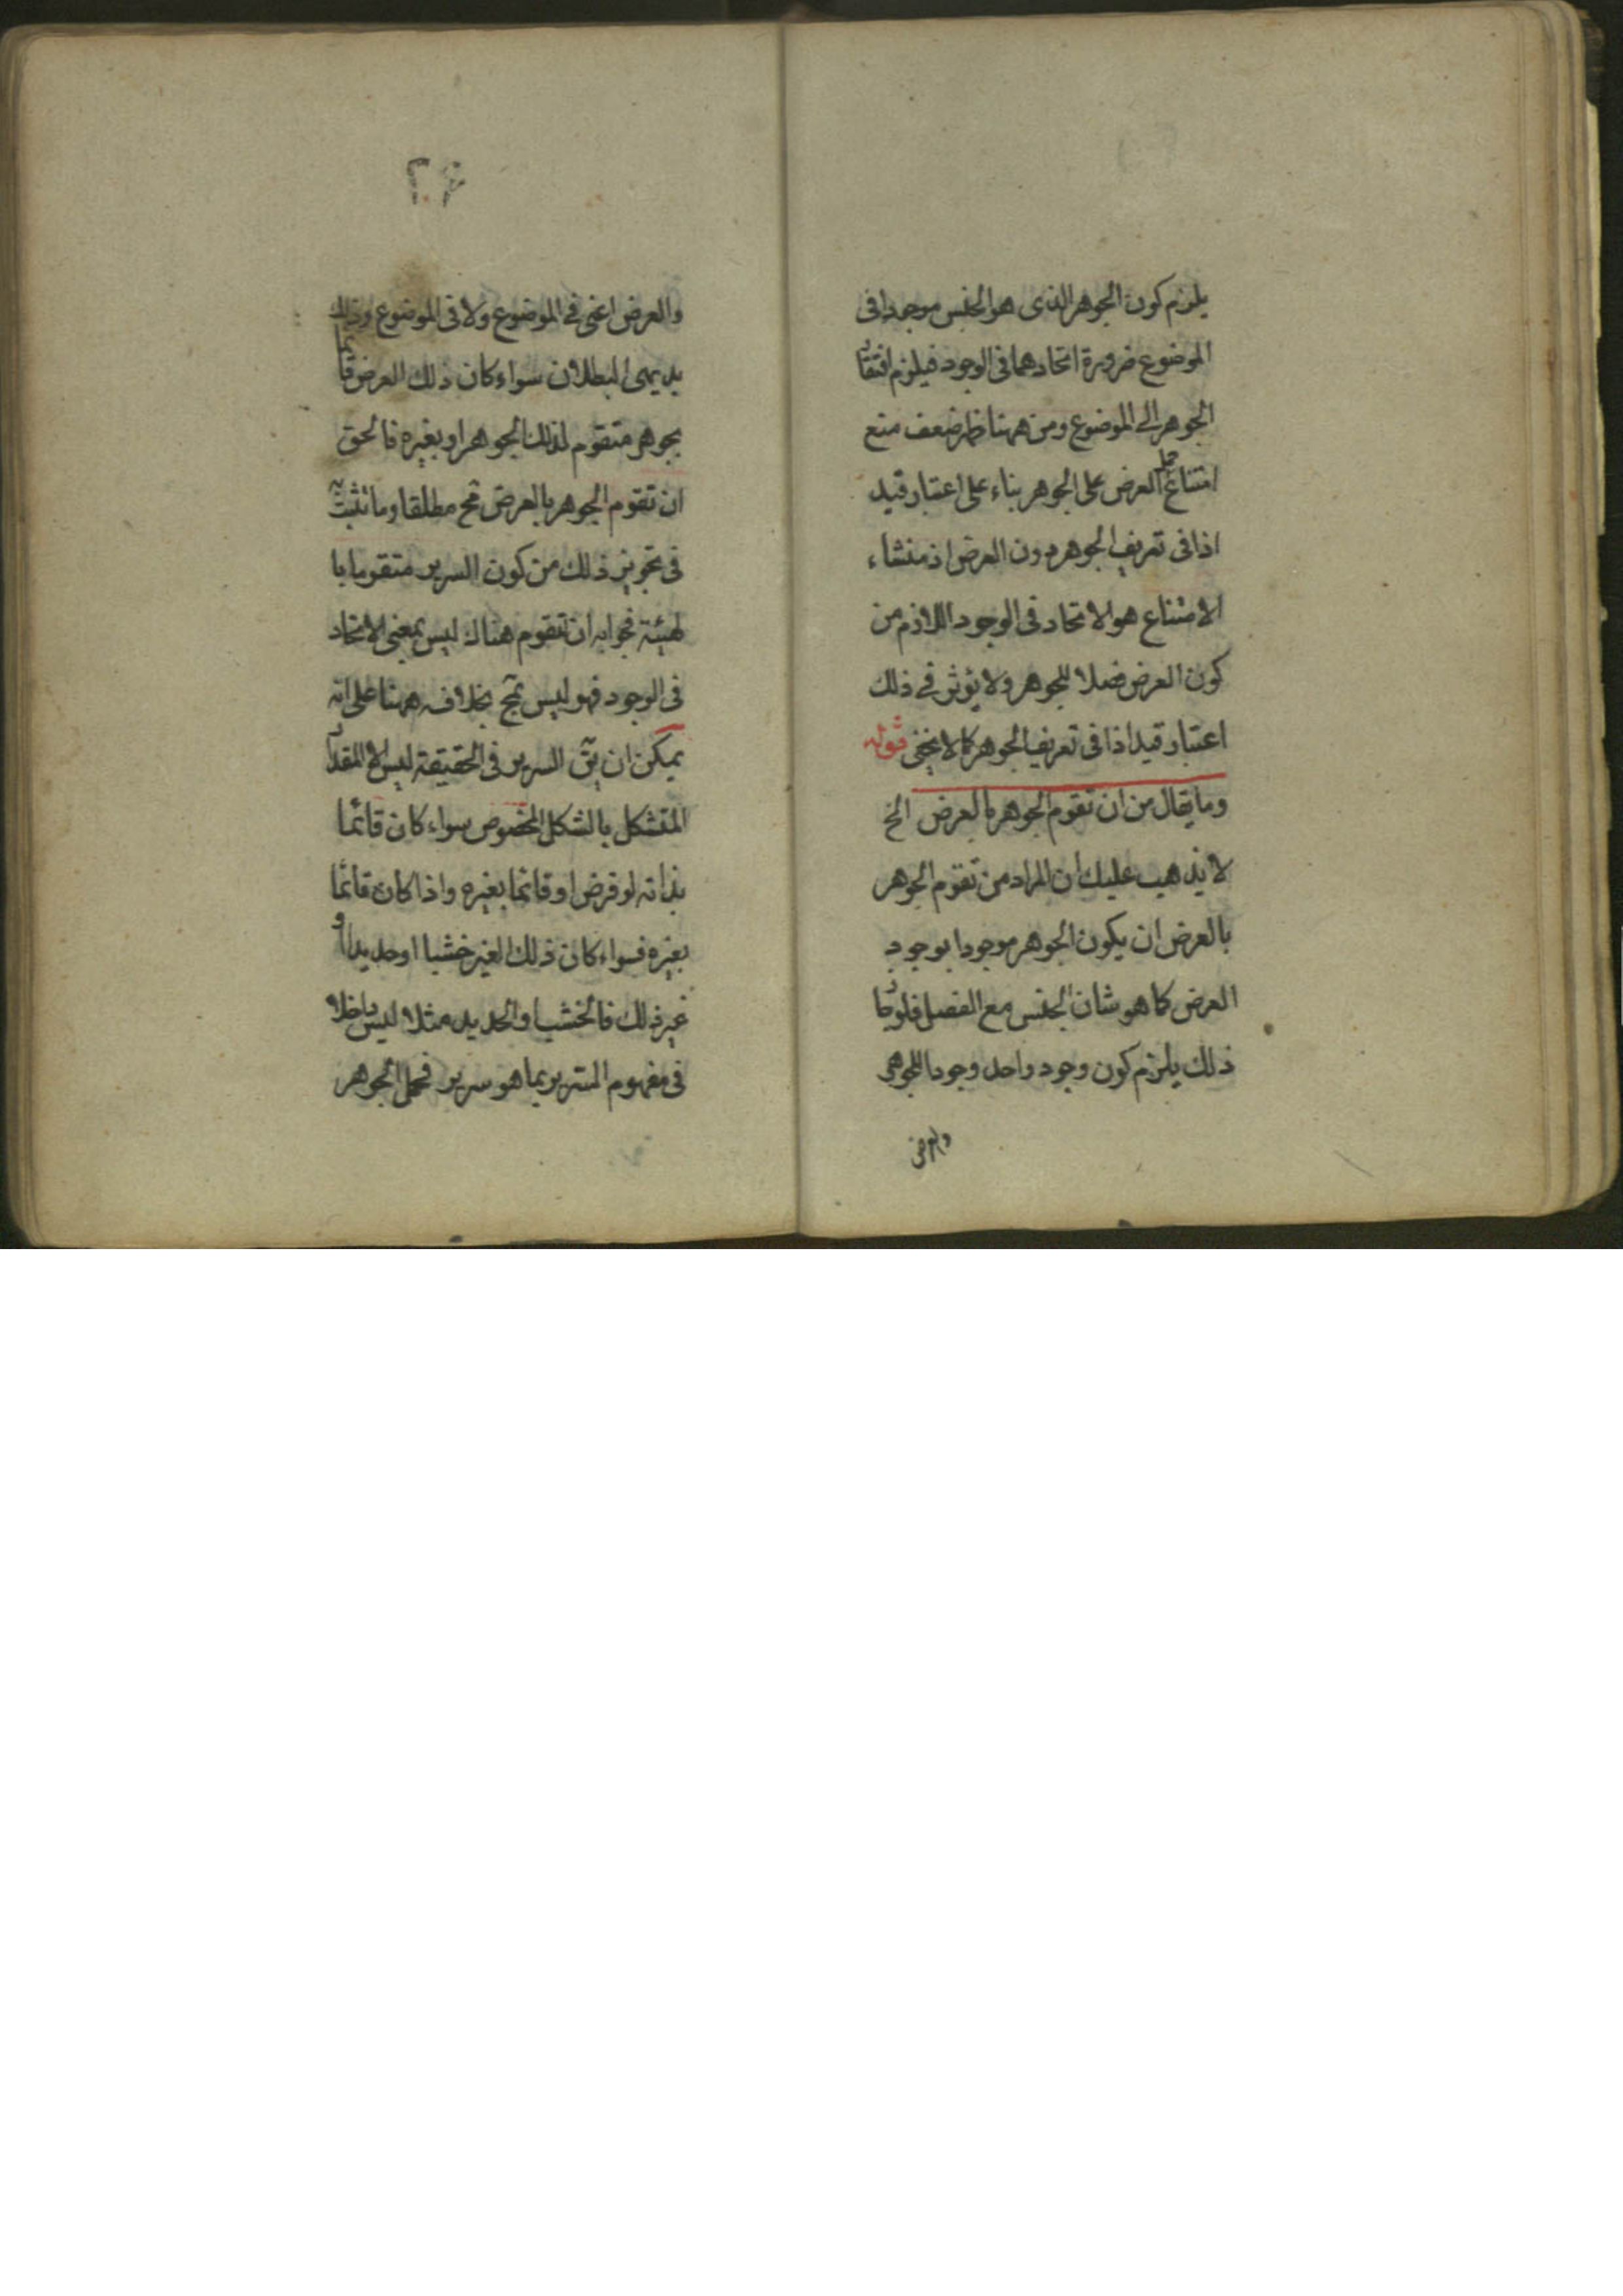 يلزم كون الجوهر الذى هو الجنس موجدا فى
الموضوع ضرورة اتحادهما فى الوجود فيلزم افتقار
الجوهر الى الموضوع ومن ههنا ظهر ضعف منع
امتناع حمل العرض على الجوهر بناء على اعتبار قيد
اذا فى تعريف الجوهر دون العرض اذ منشاء
الامتناع هو الاتحاد فى الوجود اللازم من
كون العرض فصلا للجوهر ولا يؤثر فى ذلك
اعتبار قيد اذا فى تعريف الجوهر كما لا يخفى قوله
وما يقال من ان تقوم الجوهر بالعرض الخ
لا يذهب عليك ان المراد من تقوم الجوهر
بالعرض ان يكون الجوهر موجودا بوجود
العرض كما هو شان الجنس مع الفصل فلو جاز
ذلك يلزم كون وجود واحد وجودا للجوهر
والعرض
٢٤
والعرض اعنى فى الموضوع ولا فى الموضوع وذلك
بديهى البطلان سواء كان ذلك العرض قائما
بجوهر متقوم لذلك الجوهر او بغيره فالحق
ان تقوم الجوهر بالعرض مح مطلقا وما تشبث
فى تجويز ذلك من كون السرير متقوما با
لهيئة فجوابه ان تقوم هناك ليس بمعنى الاتحاد
فى الوجود فهو ليس بمح بخلافه ههنا على انه
يمكن ان يق السرير فى الحقيقة ليس الا المقدار
المتشكل بالشكل المخصوص سواء كان قائما
بذاته لو فرض او قائما بغيره واذا كان قائما
بغيره فسواء كان ذلك الغير خشبا او حديدا او
غير ذلك فالخشب والحديد مثلا ليس داخلا
فى مفهوم السرير بما هو سرير فحمل الجوهر